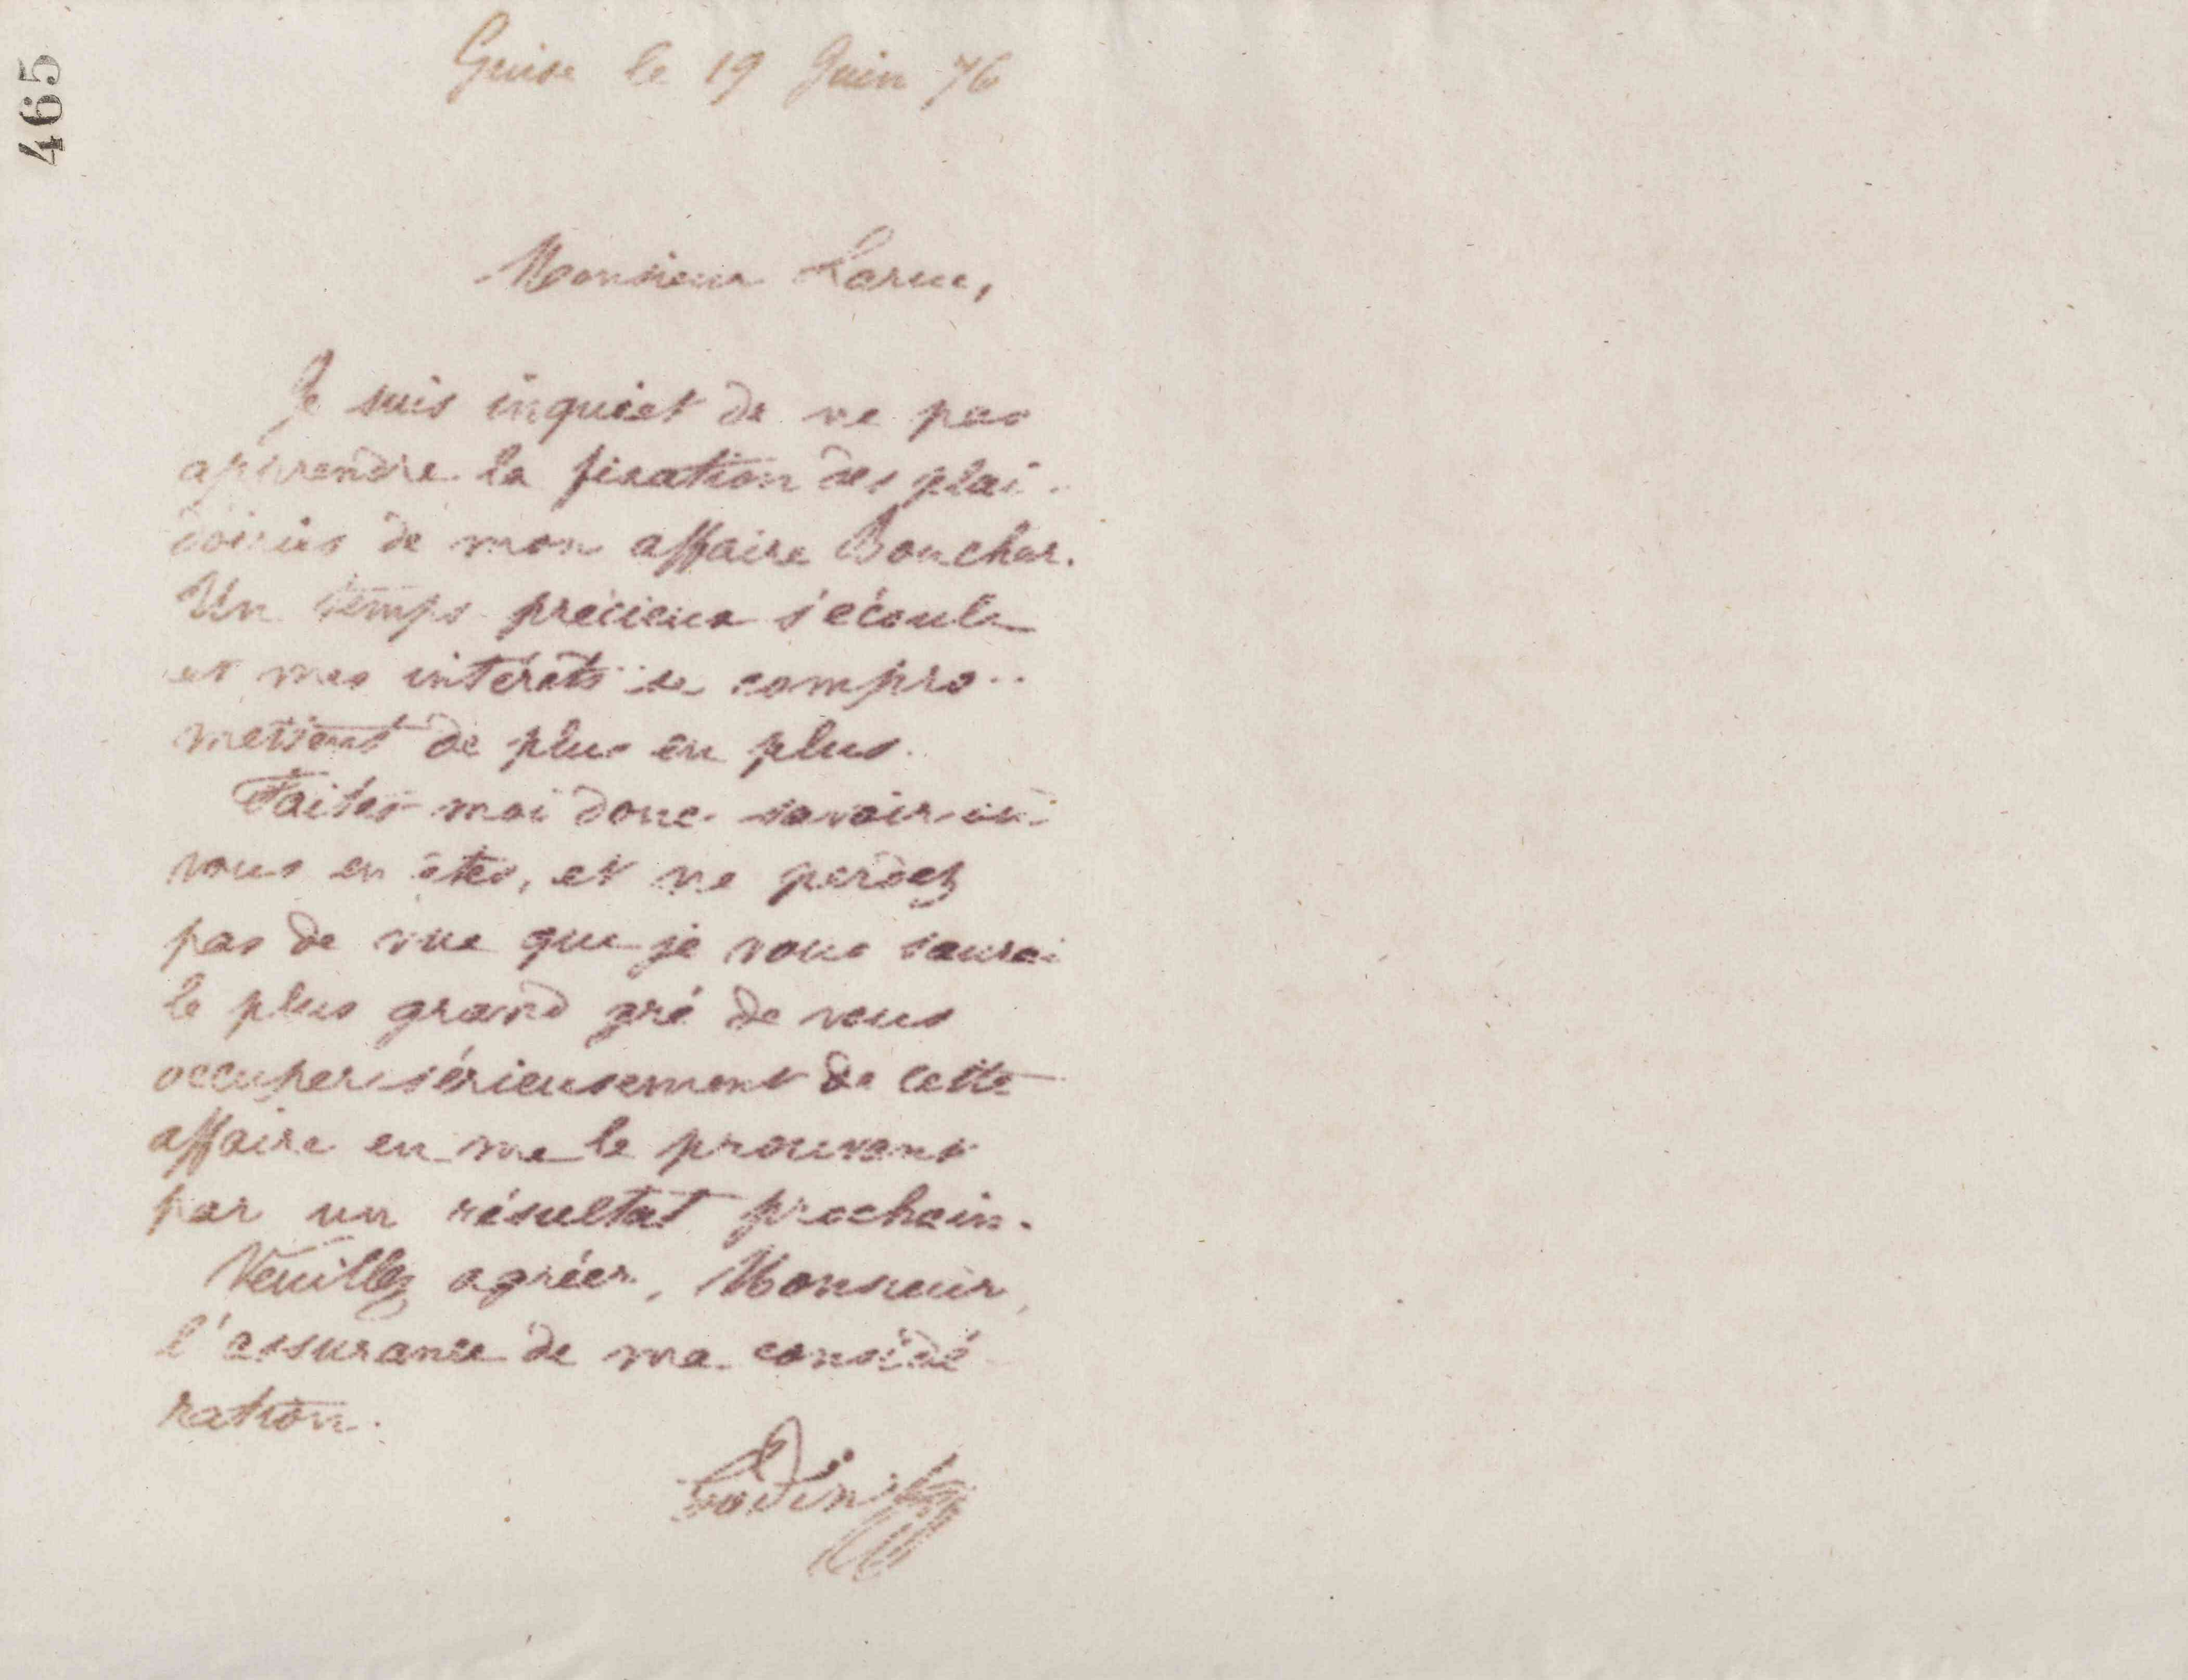 465
Guise le 19 Juin 76
Monsieur Larue,
Je suis inquiet de ne pas
apprendre la fixation des plai-
doiries de mon affaire Boucher.
Un temps précieux s'écoule
et mes intérêts se compro-
mettent de plus en plus.
Faites-moi donc savoir où
vous en êtes, et ne perdez
pas de vue que je vous saurai
le plus grand gré de vous
occuper sérieusement de cette
affaire en me le prouvant
par un résultat prochain.
Veuillez agréer, Monsieur,
l'assurance de ma considé-
ration.
Godin